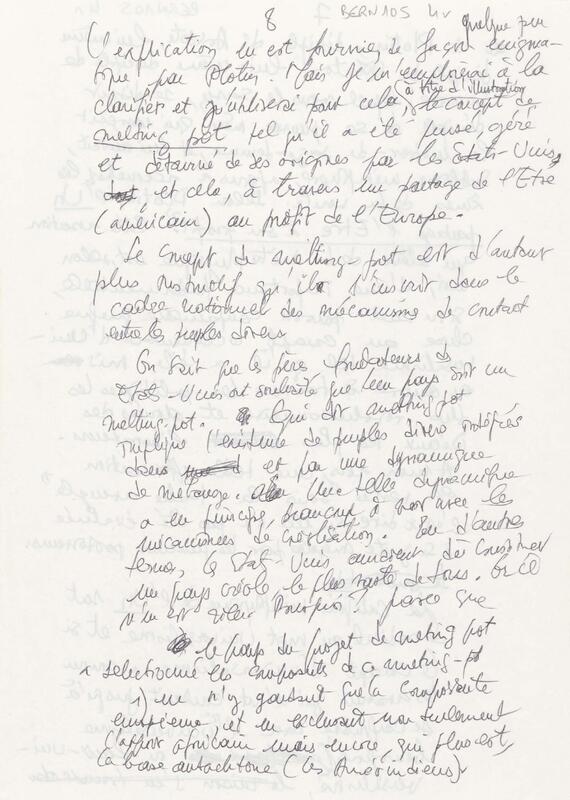 8 BERNABÉ 4v
quelque peu
L'explication lui est fournie de façon énigma-
tique par Plotin. Mais je m'emploierai à la
clarifier et j'utiliserai pour cela, à titre d'illustration le concept de
melting pot, tel qu'il a été pensé, géré
et détourné de ses origines par les Etats-Unis,
et cela, à travers un partage de l'Etre
(américain) au profit de l'Europe.
Le concept de melting-pot est d'autant
plus instructif qu'il s'inscrit dans le
cadre notionnel des mécanismes de contact
entre les peuples divers
On sait que les pères fondateurs des
Etats-Unis ont souhaité que leur pays soit un
melting-pot. Qui dit melting pot
implique l'existence de peuples divers intégrés
dans et par une dynamique
de mélange. Une telle dynamique
a en principe, beaucoup à voir avec les
mécanismes de créolisation. En d'autres
termes, les Etats-Unis auraient dû constituer
un pays créole le plus vaste de tous. Or ce
n'en est rien. Pourquoi? parce que
le pays du projet de melting pot
a sélectionné les composants de ce melting-pot
1) en n'y gardant que la composante
européenne et en excluant non seulement
l'apport africain mais encore, qui plus est,
la base autochtone (les Amérindiens)